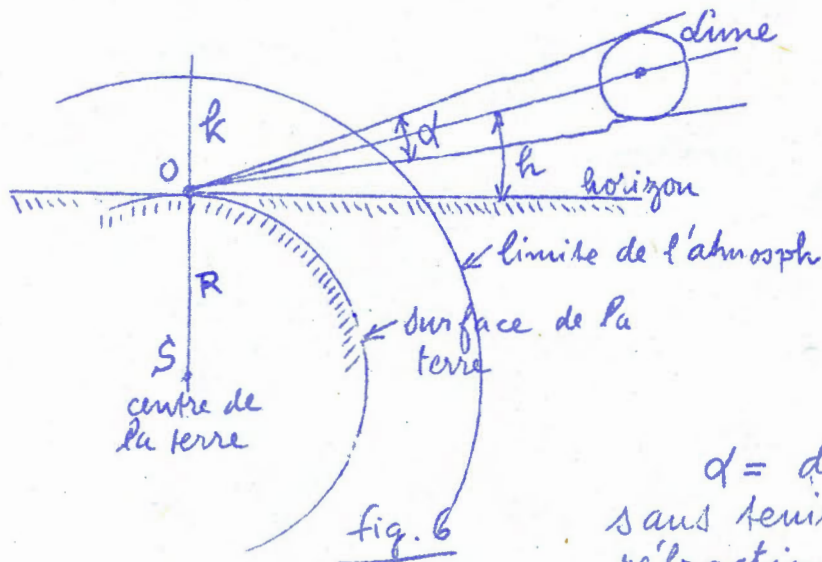 Lune
k
α
h
O
horizon
limite de l'atmosph
R
surface de la
terre
S
centre de
la terre
α = d
sans tenir
fig. 6
réfraction